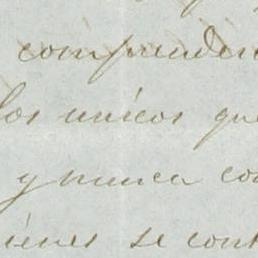 comprender
los unicos que
y nunca co
ienes se cont